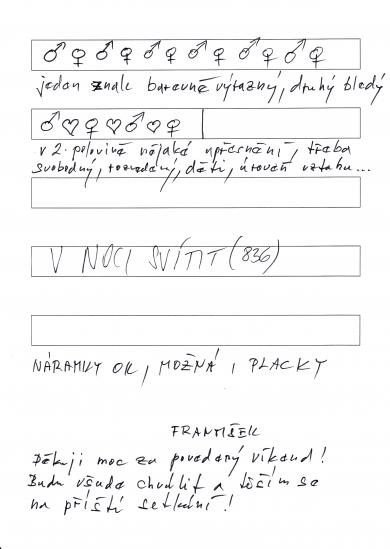 ♂ ♀ ♂ ♀ ♂ ♀ ♂ ♀ ♂ ♀ ♂ ♀
jeden znak barevně výrazný, druhý bledý
♂ ♡ ♀ ♡ ♂ ♡ ♀
v 2. polovině nějaké upřesnění, třeba
svobodný, rozvedený, děti, úroveň vztahu...
V NOCI SVÍTIT (836)
NÁRAMKY OK, MOŽNÁ I PLACKY
FRANTIŠEK
Děkuji moc za povedený víkend!
Budu všude chválit a těším se
na příští setkání!